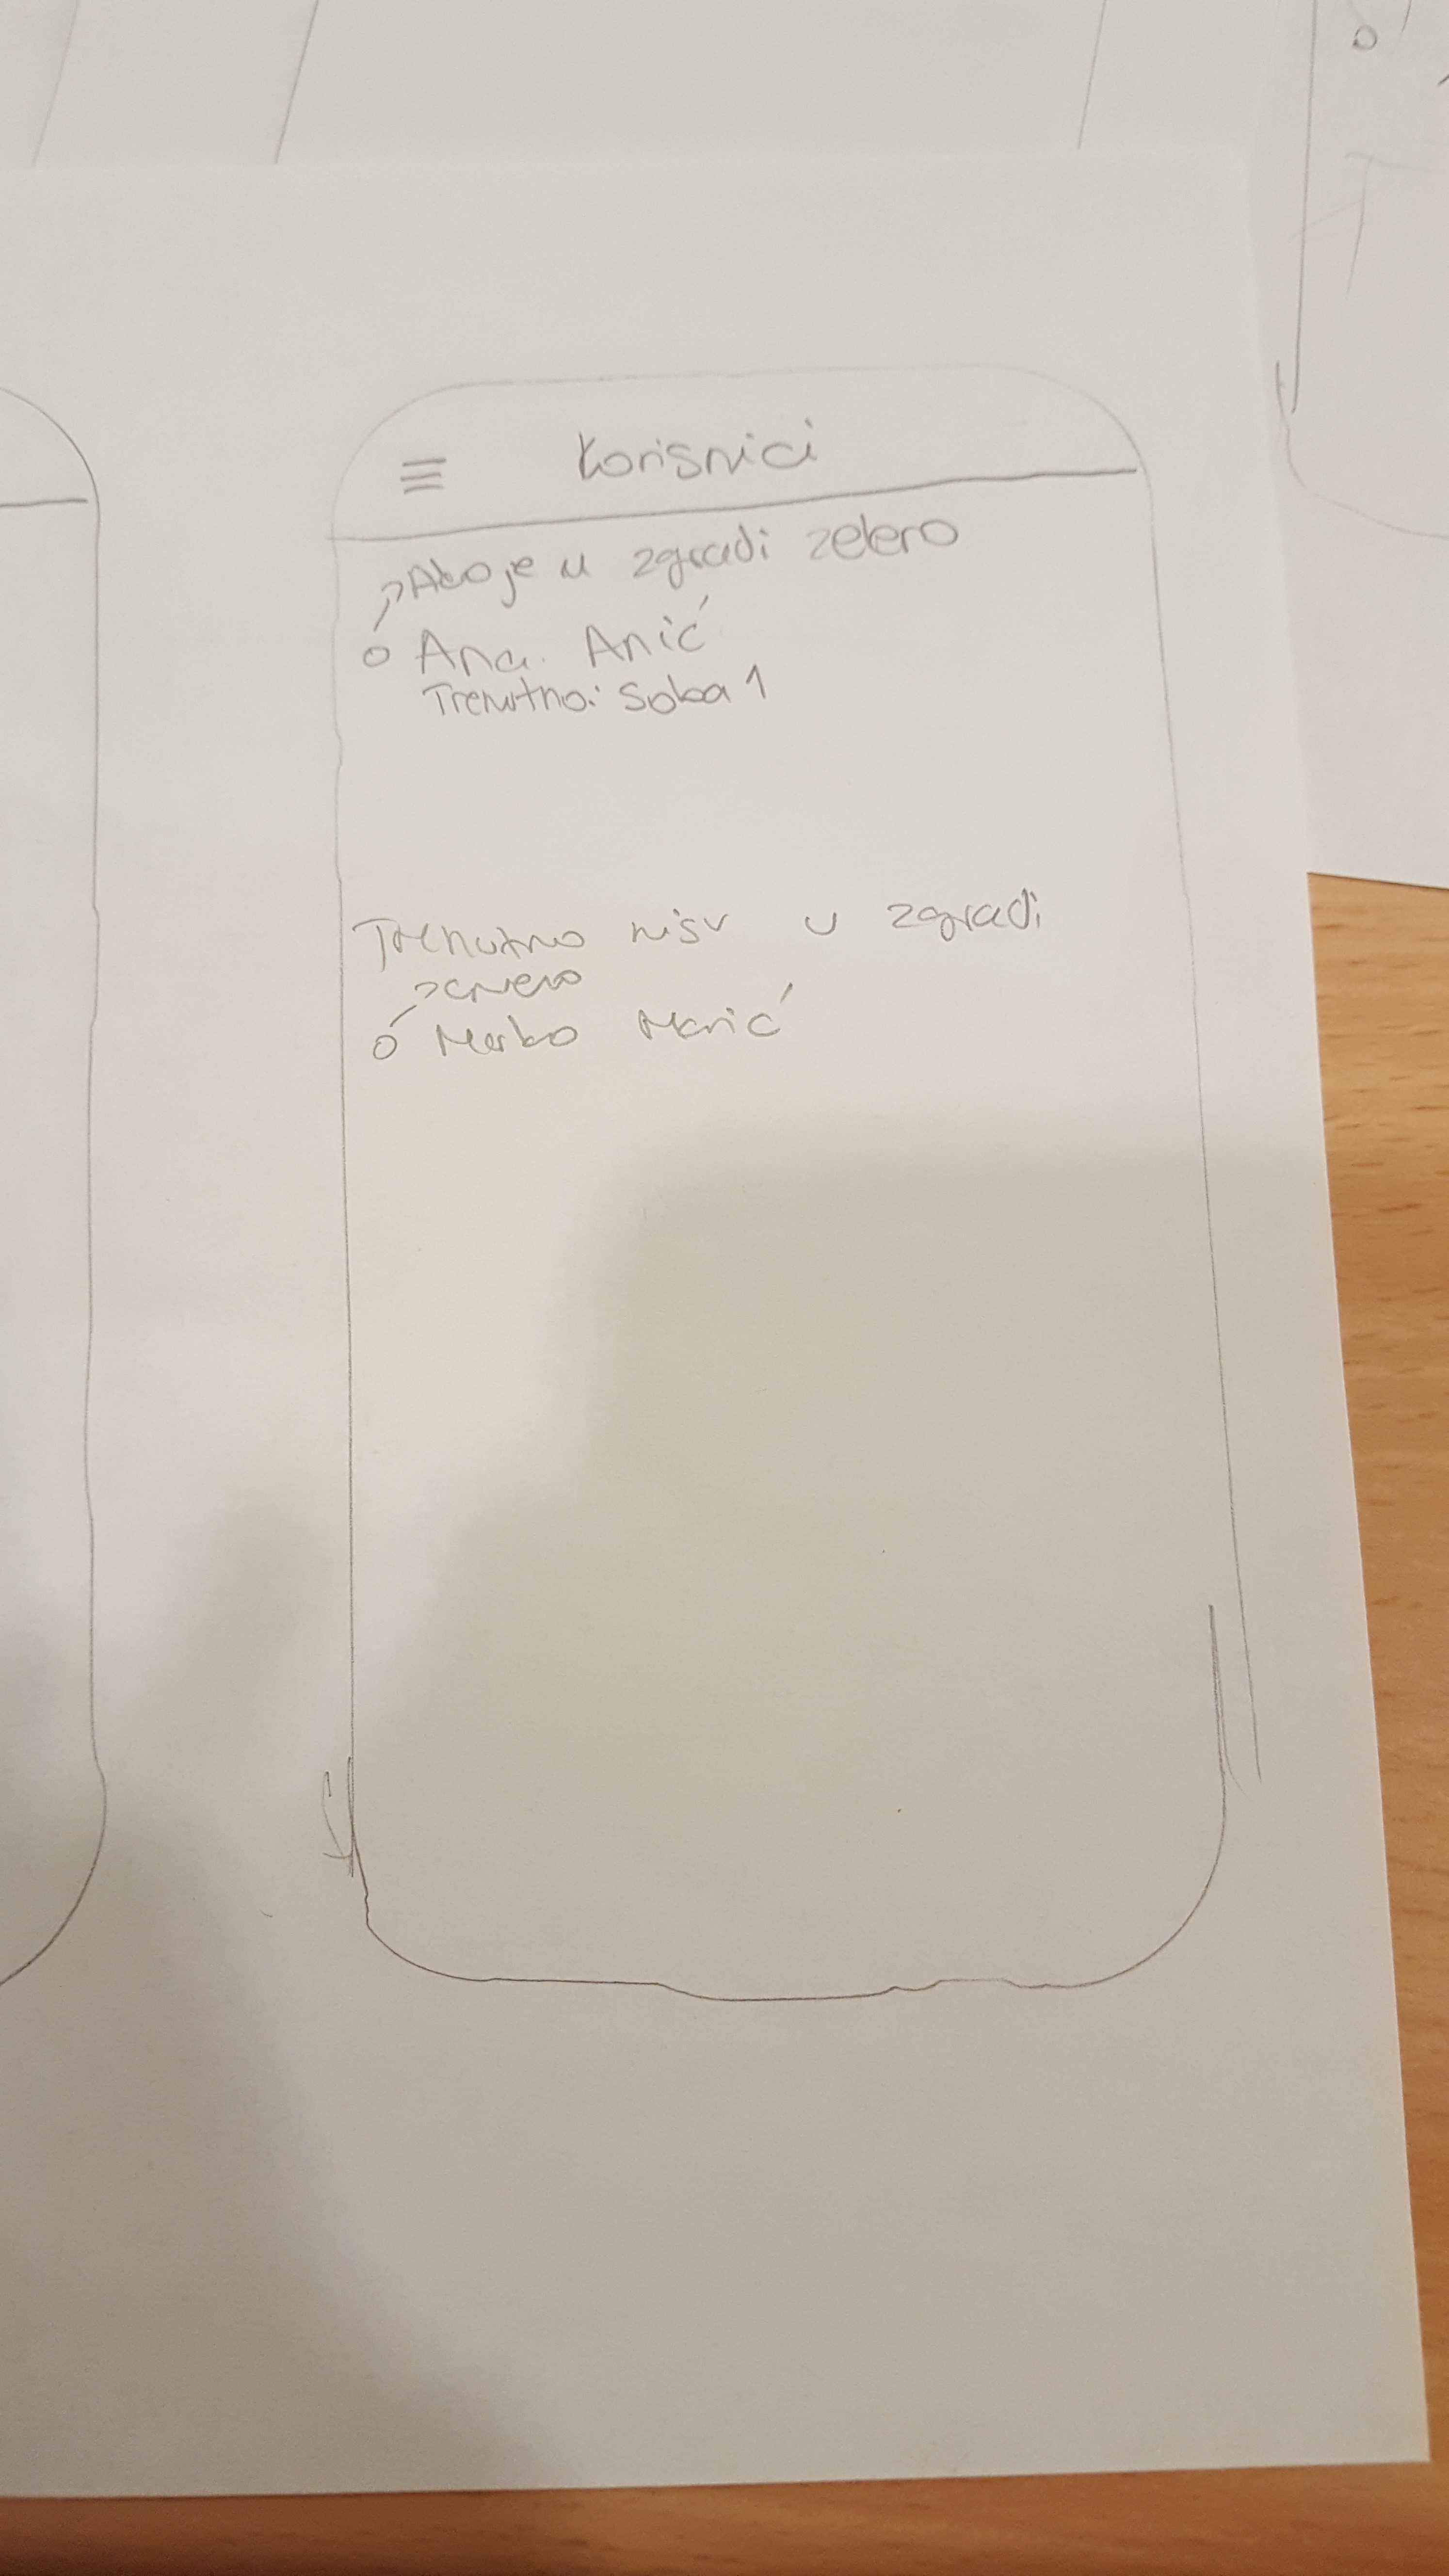 Korisnici
Ako je u zgradi zeleno
Ana Anić
Trenutno: Soba 1
Trenutno nisu u zgradi
crveno
Marko Marić